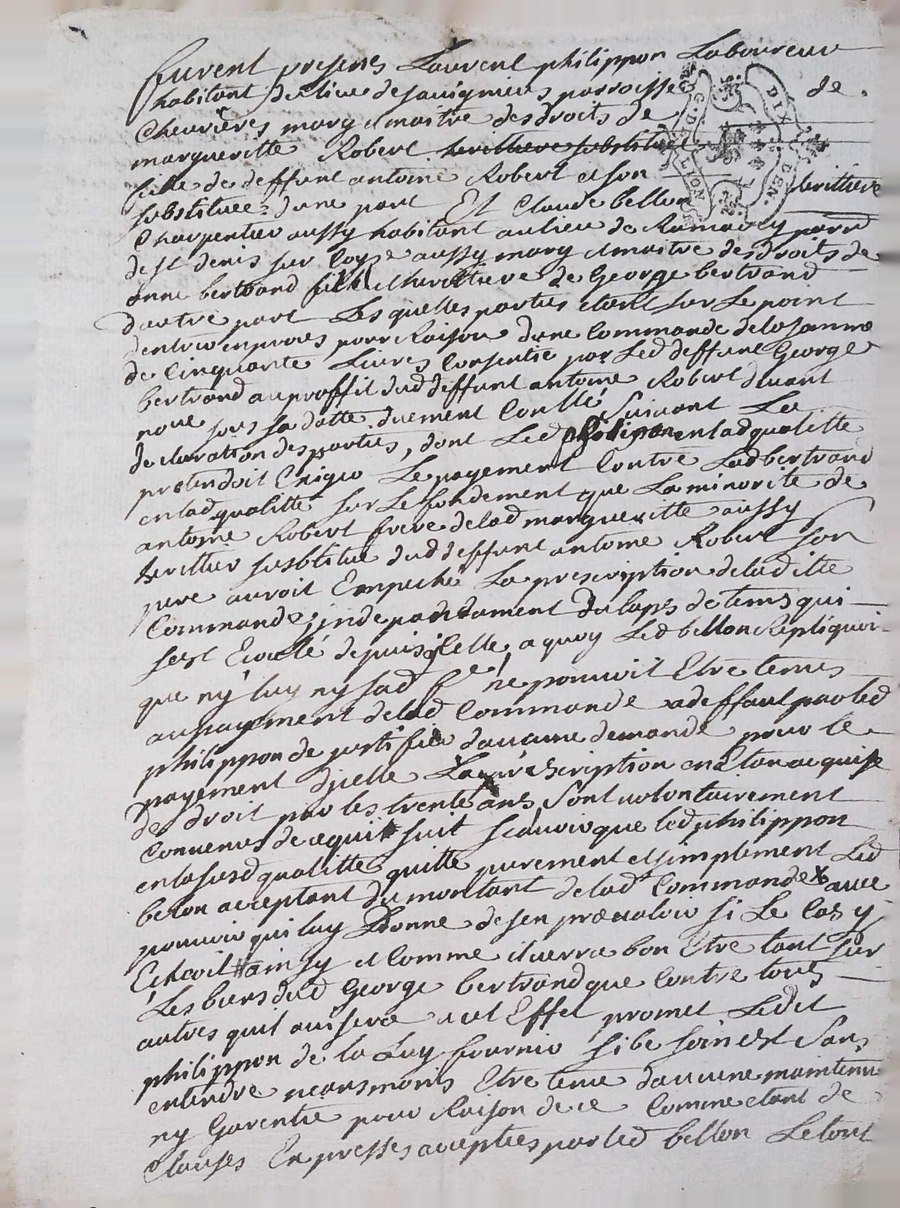 furent presens Laurent philippon Laboureur
habitant du lieu de sauignieres parroisse de
Chevrières mary et maitre des droits de
margueritte Robert
fille de deffunt antoine Robert et son herittiere
substituée d'une part Et Claude bellon
Charpentier aussy habitant au lieu de
de st denis sur Coyse aussy mary et maitre des droits de
anne bertrand fille et herittiere de George bertrand
d'autre part Lesquelles parties etant sur le point
dentrer en proces pour Raison d'une Commande de la somme
de Cinquante Livres Consentie par led deffunt George
bertrand au proffit dud deffunt antoine Robert devant
nous sous sa datte duement Conllé suivant La
declaration des parties, dont Led philippon en lad qualitté
pretendoit Exiger Le payement Contre Lad bertrand
en lad qualitté sur Le fondement que La minorité de
antoine Robert frere de lad margueritte aussy
herittier substitué dud deffunt antoine Robert son
pere auroit Empeché La prescription de laditte
Commande, independamment du laps de tems qui
s'est Ecoulé depuis icelle, a quoy Led bellon Repliquoit
que ny luy ny sad fe ne pouvoit Etre tenus
au payement de lad Commande a deffaut par led
philippon de justifier d'aucune demande pour le
payement d'icelle La prescription en Etan acquise
de droit par les trente ans, sont volontairement
Convenus de ce qui suit scauoir que led philippon
en la susd qualitté quitte purement et simplement Led
belon acceptant du montant de lad Commande X avec
pouvoir qui luy donne de s'en prevaloir si Le Cas y
Echoit ainsy et Comme il verra bon Etre tant sur
Les biens dud George bertrand que Contre tous
autres quil avisera a cet Effet promet Ledit
philippon de la Luy fournir si besoin est sans
entendre neansmoins Etre tenu d'aucune maintenue
ny Garentie pour Raison de ce Comme etant de
Clauses Expresses acceptées par led bellon Le tout
G. DE LION
DIX DEN.